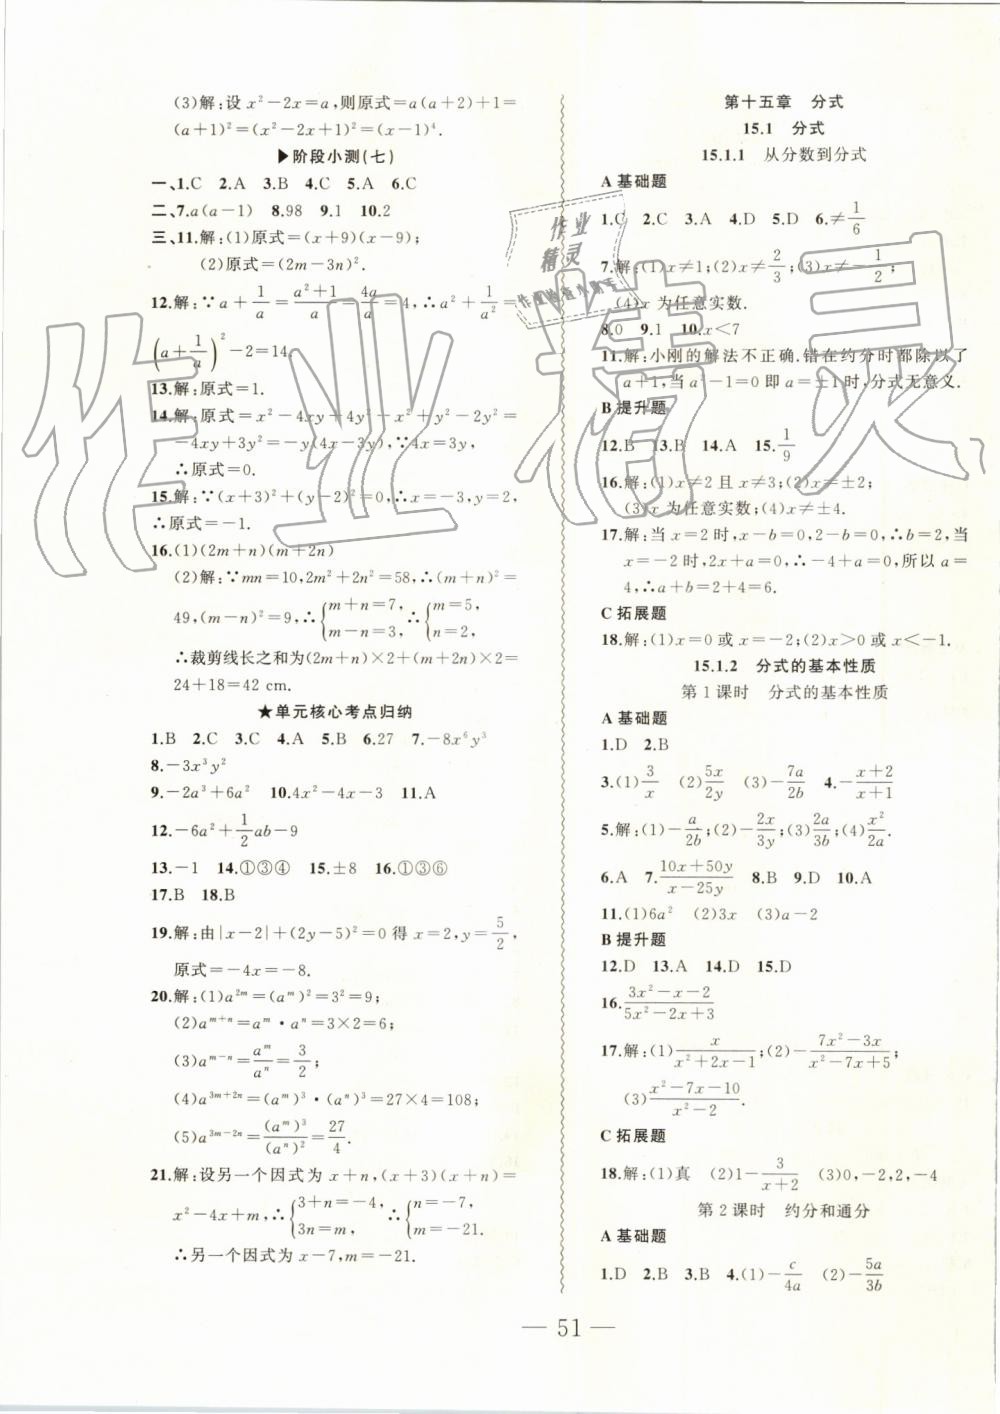 (3)解:设 x²-2x=a,则原式=a(a+2)+1=
(a+1)²=(x²-2x+1)²=(x-1)⁴.
▶阶段小测(七)
一、1.C 2.A 3.B 4.C 5.A 6.C
二、7.a(a-1) 8.98 9.1 10.2
三、11.解:(1)原式=(x+9)(x-9);
(2)原式=(2m-3n)².
12.解:∵a+1/a=(a²+1)/a=4a/a=4,∴a²+1/a²=
(a+1/a)²-2=14.
13.解:原式=1.
14.解:原式=x²-4xy+4y²-x²+y²-2y²=
-4xy+3y²=-y(4x-3y),∵4x=3y,
∴原式=0.
15.解:∵(x+3)²+(y-2)²=0,∴x=-3,y=2,
∴原式=-1.
16.(1)(2m+n)(m+2n)
(2)解:∵mn=10,2m²+2n²=58,∴(m+n)²=
49,(m-n)²=9,∴{m+n=7, m-n=3, ∴{m=5, n=2,
∴裁剪线长之和为(2m+n)×2+(m+2n)×2=
24+18=42 cm.
★单元核心考点归纳
1.B 2.C 3.C 4.A 5.B 6.27 7.-8x⁶y³
8.-3x³y²
9.-2a³+6a² 10.4x²-4x-3 11.A
12.-6a²+1/2ab-9
13.-1 14.①③④ 15.±8 16.①③⑥
17.B 18.B
19.解:由|x-2|+(2y-5)²=0得 x=2,y=5/2,
原式=-4x=-8.
20.解:(1)a²ᵐ=(aᵐ)²=3²=9;
(2)aᵐ⁺ⁿ=aᵐ·aⁿ=3×2=6;
(3)aᵐ⁻ⁿ=aᵐ/aⁿ=3/2;
(4)a³ᵐ⁺²ⁿ=(aᵐ)³·(aⁿ)³=27×4=108;
(5)a³ᵐ⁻²ⁿ=(aᵐ)³/(aⁿ)²=27/4.
21.解:设另一个因式为 x+n,(x+3)(x+n)=
x²-4x+m,∴{3+n=-4, 3n=m, ∴{n=-7, m=-21.
∴另一个因式为 x-7,m=-21.
第十五章 分式
15.1 分式
15.1.1 从分数到分式
A 基础题
1.C 2.C 3.A 4.D 5.D 6.≠1/6
7.解:(1)x≠1;(2)x≠2/3;(3)x≠-1/2;
(4)x 为任意实数.
8.0 9.1 10.x<7
11.解:小刚的解法不正确.错在约分时都除以了
a+1,当 a²-1=0 即 a=±1时,分式无意义.
B 提升题
12.B 13.B 14.A 15.1/9
16.解:(1)x≠2 且 x≠3;(2)x≠±2;
(3)x 为任意实数;(4)x≠±4.
17.解:当 x=2 时,x-b=0,2-b=0,∴b=2,当
x=-2 时,2x+a=0,∴-4+a=0,所以 a=
4,∴a+b=2+4=6.
C 拓展题
18.解:(1)x=0 或 x=-2;(2)x>0 或 x<-1.
15.1.2 分式的基本性质
第1课时 分式的基本性质
A 基础题
1.D 2.B
3.(1)3/x (2)5x/2y (3)-7a/2b 4.-(x+2)/(x+1)
5.解:(1)-a/2b;(2)-2x/3y;(3)2a/3b;(4)x²/2a.
6.A 7.(10x+50y)/(x-25y) 8.B 9.D 10.A
11.(1)6a² (2)3x (3)a-2
B 提升题
12.D 13.A 14.D 15.D
16.(3x²-x-2)/(5x²-2x+3)
17.解:(1)x/(x²+2x-1);(2)-(7x²-3x)/(x²-7x+5);
(3)(x²-7x-10)/(x²-2).
C 拓展题
18.解:(1)真 (2)1-3/(x+2) (3)0,-2,2,-4
第2课时 约分和通分
A 基础题
1.D 2.B 3.B 4.(1)-c/4a (2)-5a/3b
— 51 —
作业精灵
作业
精灵